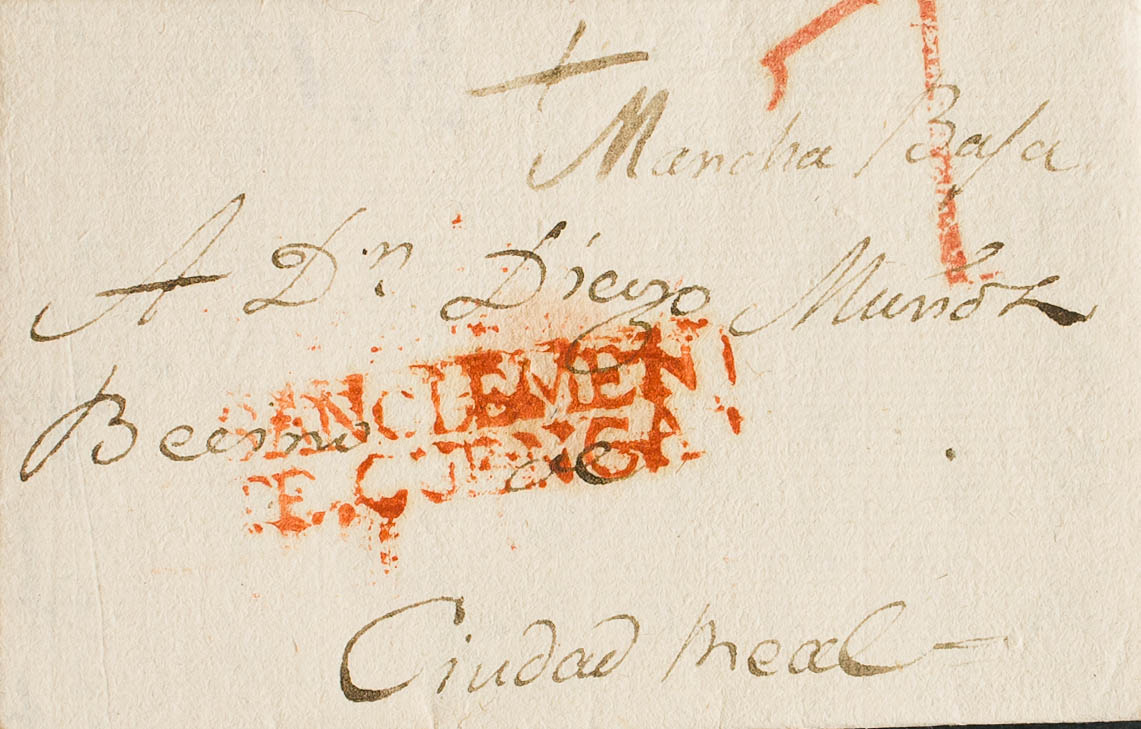 Mancha Baja
A Dn Diego Muñoz
Becino de
SANCLEMEN
TE. CUENCA
Ciudad Real
7